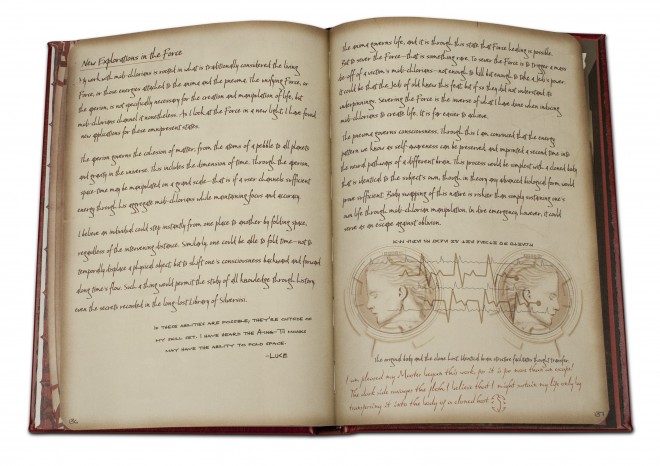 New Explorations in the Force
My work with midi-chlorians is rooted in what is traditionally considered the living
Force, or those energies attached to the anima and the pneuma. The unifying Force, or
the aperion, is not specifically necessary for the creation and manipulation of life, but
midi-chlorians channel it nonetheless. As I look at the Force in a new light, I have found
new applications for these omnipresent states.
The aperion governs the cohesion of matter: from the atoms of a pebble to all planets
and gravity in the universe. This includes the dimension of time. Through the aperion,
space-time may be manipulated on a grand scale—that is if a user channels sufficient
energy through his aggregate midi-chlorians while maintaining focus and accuracy.
I believe an individual could step instantly from one place to another by folding space,
regardless of the intervening distance. Similarly, one could be able to fold time—not to
temporally displace a physical object, but to shift one's consciousness backward and forward
along time's flow. Such a thing would permit the study of all knowledge through history,
even the secrets recorded in the long-lost Library of Silversisi.
If these abilities are possible, they're outside of
my skill set. I have heard the Aing-Tii monks
may have the ability to fold space.
—Luke
186
The anima governs life, and it is through this state that Force healing is possible.
But to sever the Force—that is something rare. To sever the Force is to trigger a mass
die-off of a victim's midi-chlorians—not enough to kill but enough to take a Jedi's power.
It could be that the Jedi of old knew this feat, but if so they did not understand its
underpinnings. Severing the Force is the inverse of what I have done when inducing
midi-chlorians to create life. It is far easier to achieve.
The pneuma governs consciousness. Through this I am convinced that the energy
pattern we know as self-awareness can be preserved, and imprinted a second time into
the neural pathways of a different brain. This process would be simplest with a cloned body
that is identical to the subject's own, though in theory any advanced biological form would
prove sufficient. Body swapping of this nature is riskier than simply sustaining one's
own life through midi-chlorian manipulation. In dire emergency, however, it could
serve as an escape against oblivion.
The original body and the clone host. Identical brain structure facilitates thought transfer.
I am pleased my Master began this work, for it is far more than an escape!
The dark side ravages the flesh. I believe that I might sustain my life only by
transferring it into the body of a cloned host.
187